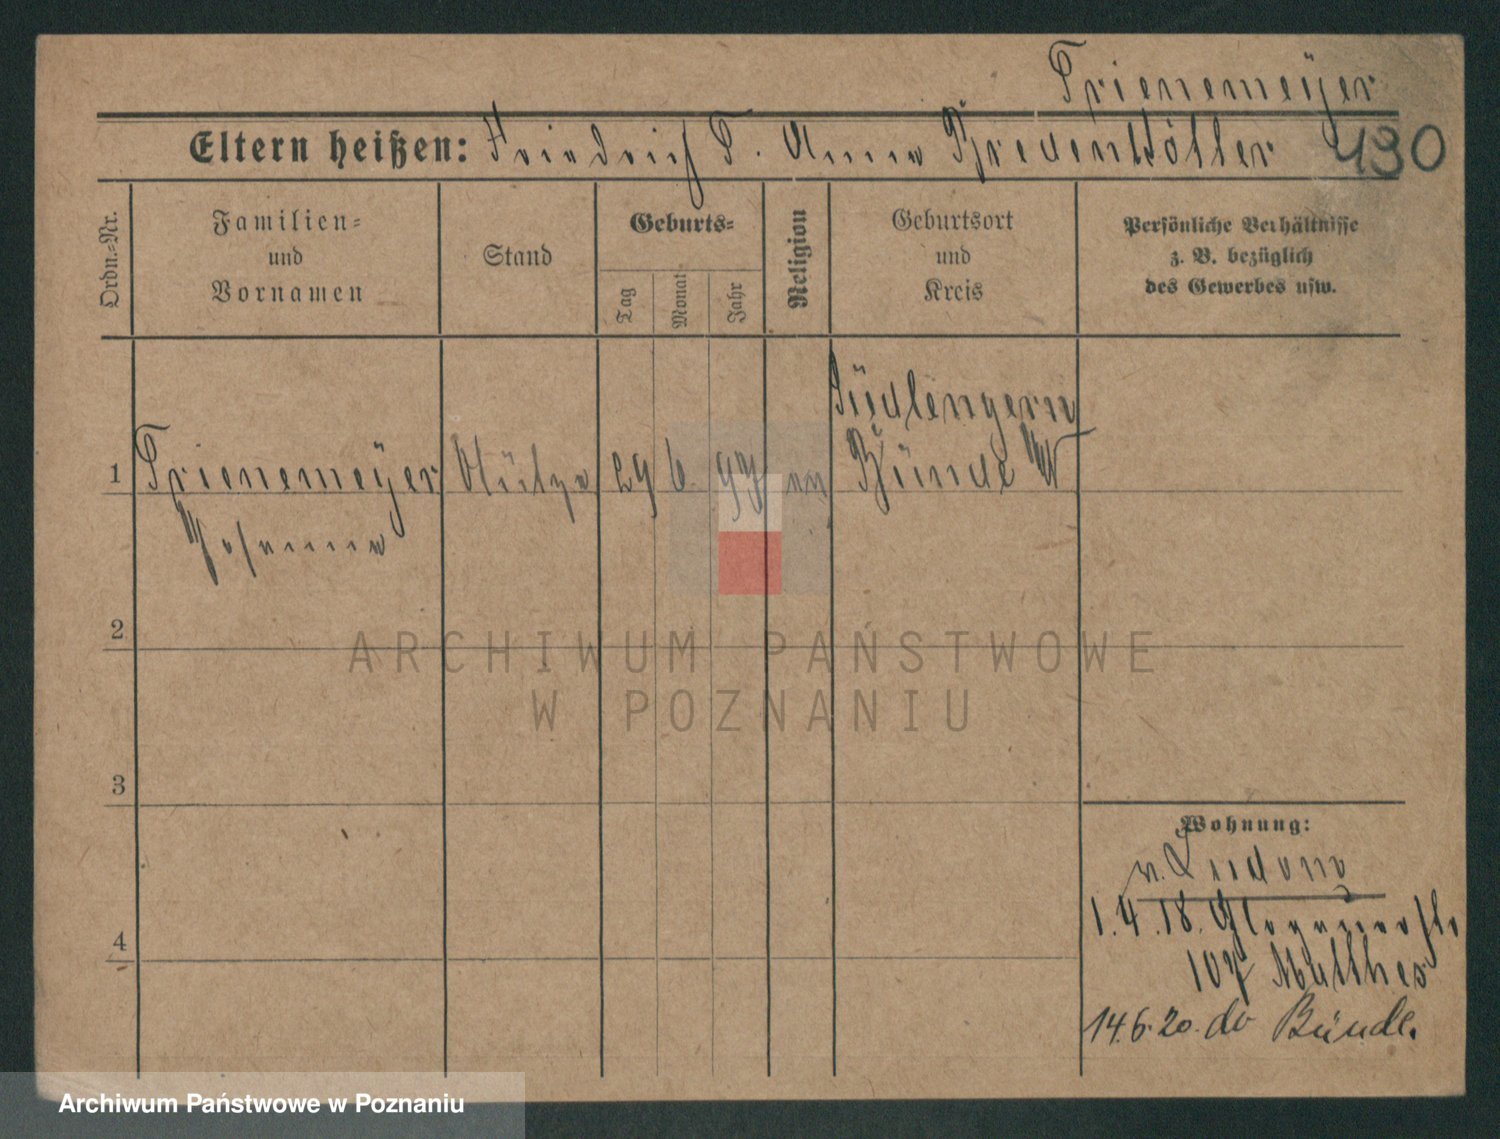 Trienemeÿer
Eltern heißen: Friedrich T. Anna Bredenköller 430
Ordn.-Nr.
Familien-
und
Vornamen
Stand
Geburts-
Tag
Monat
Jahr
Religion
Geburtsort
und
Kreis
Persönliche Verhältnisse
z. B. bezüglich
des Gewerbes usw.
Südlengern
1 Trienemeÿer Stütze 29 6. 97 Bünde W
Johanna
2
ARCHIWUM PAŃSTWOWE
W POZNANIU
3
Wohnung:
v.
1.4.18. Glogauerstr
107 Matthes
4
14.6.20. do Bünde.
Archiwum Państwowe w Poznaniu